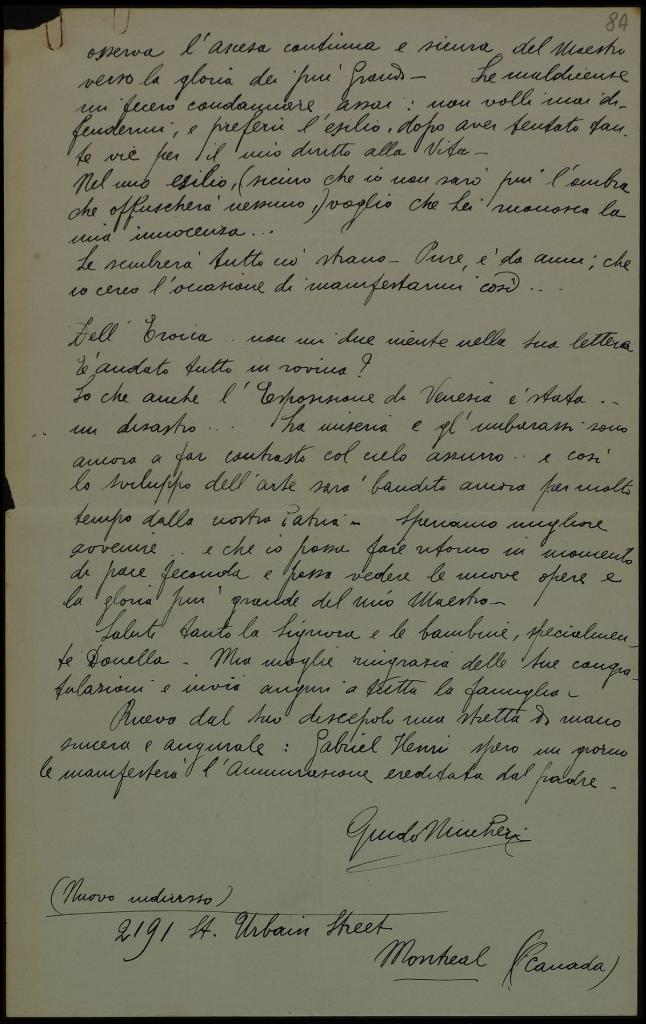 8A
osserva l'ascesa continua e sicura del Maestro
verso la gloria dei più Grandi - Le maldicenze
mi fecero condannare assai: non volli mai di-
fendermi, e preferii l'esilio, dopo aver tentato tan-
te vie per il mio diritto alla Vita -
Nel mio esilio, (sicuro che io non sarò più l'ombra
che offuscherà nessuno,) voglio che Lei riconosca la
mia innocenza...
Le sembrerà tutto ciò strano - Pure, è da anni, che
io cerco l'occasione di manifestarmi così...
Dell'Eroica.. non mi dice niente nella sua lettera
È andato tutto in rovina?
So che anche l'Esposizione di Venezia è stata ..
un disastro... La miseria e gl'imbarazzi sono
ancora a far contrasto col cielo azzurro.. e così
lo sviluppo dell'arte sarà bandito ancora per molto
tempo dalla nostra Patria - Speriamo migliore
avvenire.. e che io possa fare ritorno in momento
di pace feconda e possa vedere le nuove opere e
la gloria più grande del mio Maestro -
Saluti tanto la Signora e le bambine, specialmen-
te Donella - Mia moglie ringrazia delle sue congra-
tulazioni e invia auguri a tutta la famiglia -
Riceva dal suo discepolo una stretta di mano
sincera e augurale: Gabriel Henri spero un giorno
le manifesterà l'Ammirazione ereditata dal padre -
Guido Nincheri
(Nuovo indirizzo)
2191 St. Urbain Street
Montreal (Canada)